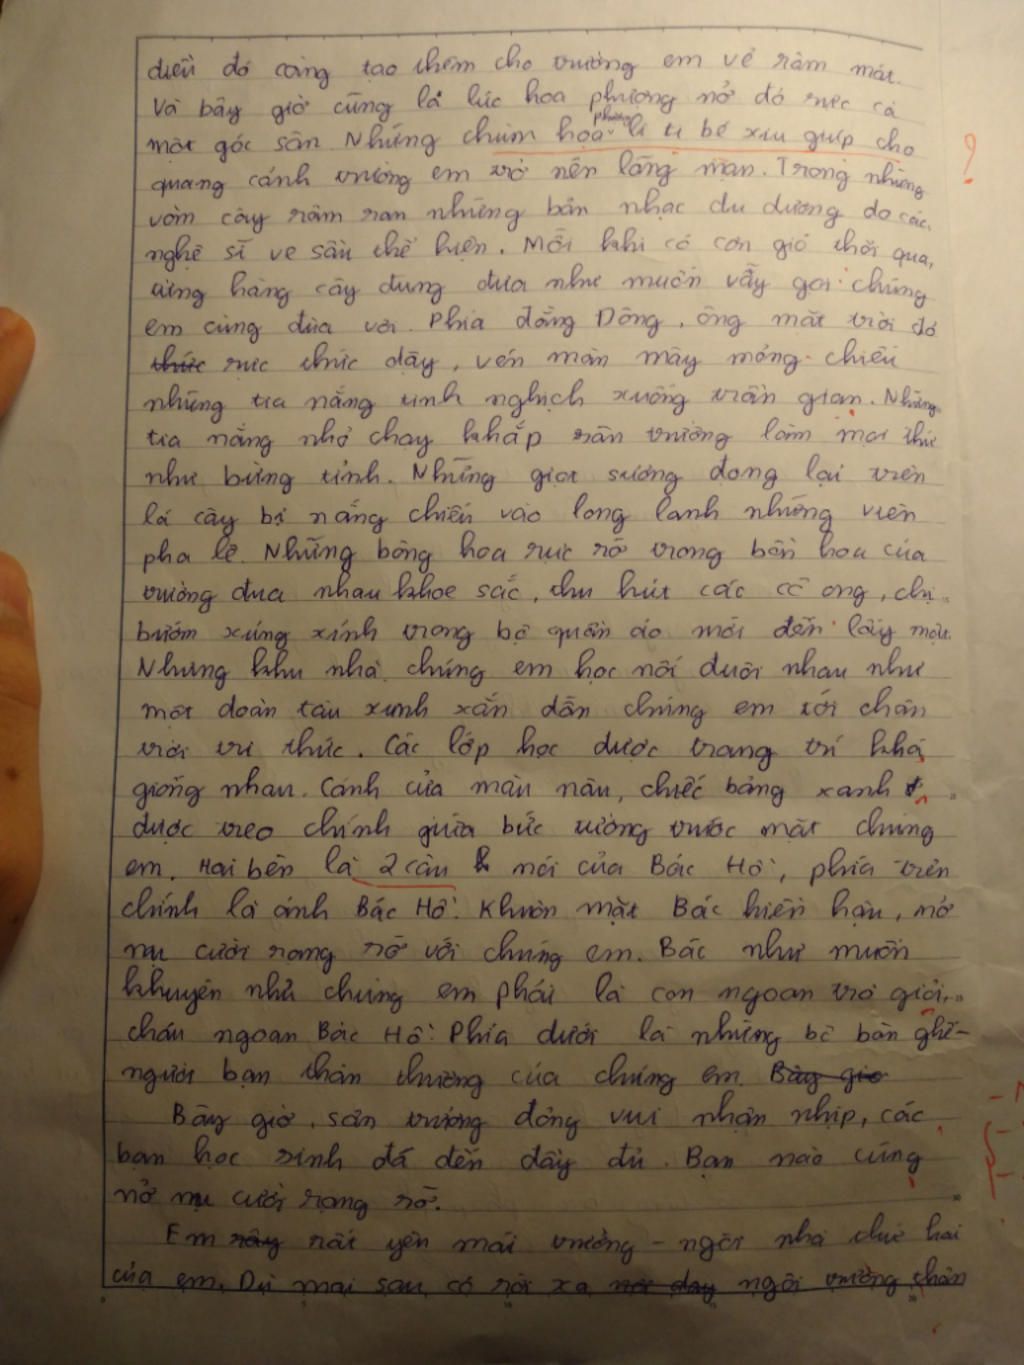 điều đó càng tạo thêm cho trường em vẻ râm mát.
Và bây giờ cũng là lúc hoa phượng nở đỏ rực cả
một góc sân. Những chùm hoa phượng li ti bé xíu giúp cho
quang cảnh trường em trở nên lãng mạn. Trong những
vòm cây râm ran những bản nhạc du dương do các
nghệ sĩ ve sầu thể hiện. Mỗi khi có cơn gió thổi qua,
từng hàng cây đung đưa như muốn vẫy gọi chúng
em cùng đùa với. Phía đằng Đông, ông mặt trời đỏ
thức rực thức dậy, vén màn mây mỏng chiếu
những tia nắng tinh nghịch xuống trần gian. Những
tia nắng nhỏ chạy khắp sân trường làm mọi thứ
như bừng tỉnh. Những giọt sương đọng lại trên
lá cây bị nắng chiếu vào long lanh những viên
pha lê. Những bông hoa rực rỡ trong bồn hoa của
trường đua nhau khoe sắc, thu hút các cô ong, chị
bướm xúng xính trong bộ quần áo mới đến lấy mật.
Những khu nhà chúng em học nối đuôi nhau như
một đoàn tàu xinh xắn dẫn chúng em tới chân
trời tri thức. Các lớp học được trang trí khá
giống nhau. Cánh cửa màu nâu, chiếc bảng xanh
được treo chính giữa bức tường trước mặt chúng
em. Hai bên là 2 câu nói của Bác Hồ, phía trên
chính là ảnh Bác Hồ. Khuôn mặt Bác hiền hậu, nở
nụ cười rạng rỡ với chúng em. Bác như muốn
khuyên nhủ chúng em phải là con ngoan trò giỏi,
cháu ngoan Bác Hồ. Phía dưới là những bộ bàn ghế -
người bạn thân thương của chúng em. Bây giờ
Bây giờ, sân trường đông vui nhộn nhịp, các
bạn học sinh đã đến đầy đủ. Bạn nào cũng
nở nụ cười rạng rỡ.
Em rấy rất yên mái trường - ngôi nhà thứ hai
của em. Dù mai sau có rời xa nơi đây ngôi trường thân